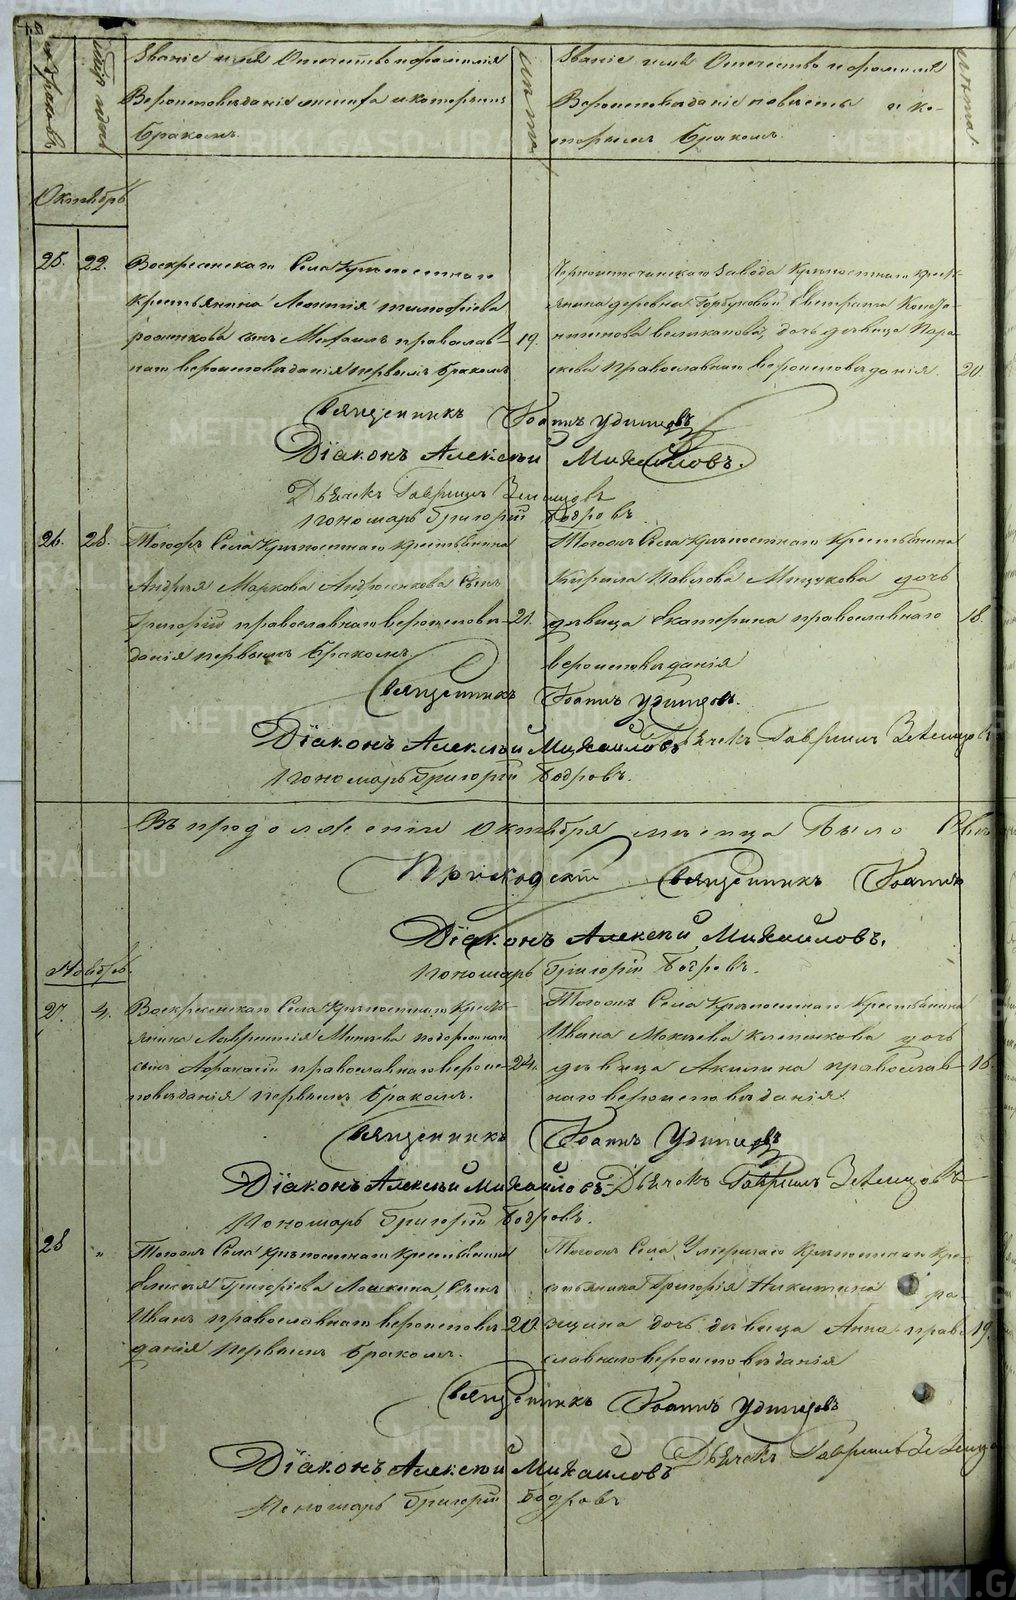 Званіе имя Отечество и фамилія
Вероисповѣданіе жениха и которымъ
бракомъ.
лѣта
Званіе имя Отечество и фамилія
Вероисповеданіе невѣсты и ко-
торымъ бракомъ.
лѣта
Октябрь
25. 22. Воскресенскаго Села Крѣпостнаго
крестьянина Леонтія Тимофѣева
сынъ Михаилъ православ-
наго вероисповѣданія первымъ бракомъ
19.
завода Крѣпостнаго крест-
янина деревни Горбуновой Евстрата Конста-
нтинова Великанова, дочь дѣвица Пара-
скева Православнаго вероисповѣданія.
20.
Священникъ Іоаннъ Удинцовъ
Діаконъ Алексѣй Михайловъ.
Дьячекъ Гавріилъ Земляницынъ
Пономарь Григорій Бобровъ
26. 28. Тогожъ Села Крѣпостнаго крестьянина
Андрея Маркова Андрюнкова Сынъ
Григорій православнаго вероисповѣ-
данія первымъ бракомъ
21.
Тогожъ Села крѣпостнаго Крестьянина
Кирила Павлова Мишукова дочь
дѣвица Екатерина православнаго
вероисповѣданія
18.
Священникъ Іоаннъ Удинцовъ.
Діаконъ Алексѣй Михайловъ Дьячекъ Гавріилъ
Пономарь Григорій Бобровъ.
Въ продолженіи Октября месяца Было
Приходскій Священникъ Іоаннъ
Діаконъ Алексѣй Михайловъ.
Пономарь Григорій Бобровъ.
Ноябрь.
27. 4. Воскресенскаго Села Крѣпостнаго Кресть-
янина Лаврентія
сынъ Афанасій православнаго вероис-
поведанія первымъ бракомъ.
24.
Тогожъ Села Крѣпостнаго Крестьянина
Ивана Мокѣева дочь
дѣвица Акилина православ-
наго вероисповѣданія.
16.
Священникъ Іоаннъ Удинцовъ
Діаконъ Алексѣй Михайловъ Дьячекъ Гавріилъ
Пономарь Григорій Бобровъ.
28 „ Тогожъ Села крѣпостнаго крестьянина
Елисея Григорьева Лошкина, Сынъ
Иванъ православнаго вероисповѣ-
данія Первымъ бракомъ.
20.
Тогожъ Села Умершаго Крѣпостнаго Кре-
стьянина Григорія Никитина
дочь дѣвица Анна право-
славнаго вероисповѣданія
19.
Священникъ Іоаннъ Удинцовъ
Діаконъ Алексѣй Михайловъ Дьячекъ Гавріилъ
Пономарь Григорій Бобровъ
METRIKI.GASO-URAL.RU